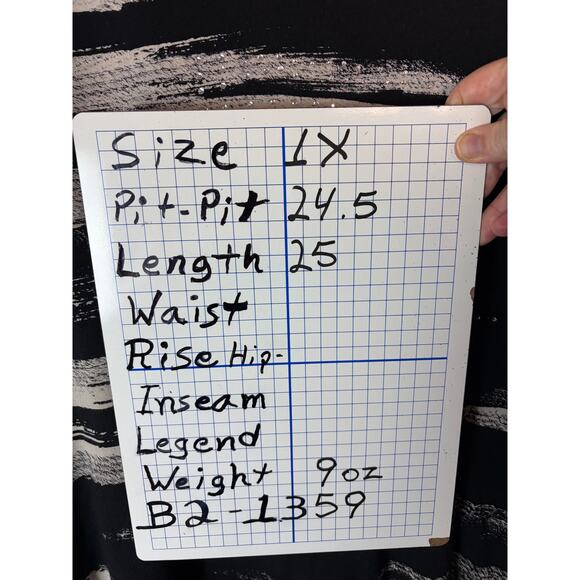 Size 1X
Pit-Pit 24.5
Length 25
Waist
Rise Hip-
Inseam
Legend
Weight 9oz
B2-1359